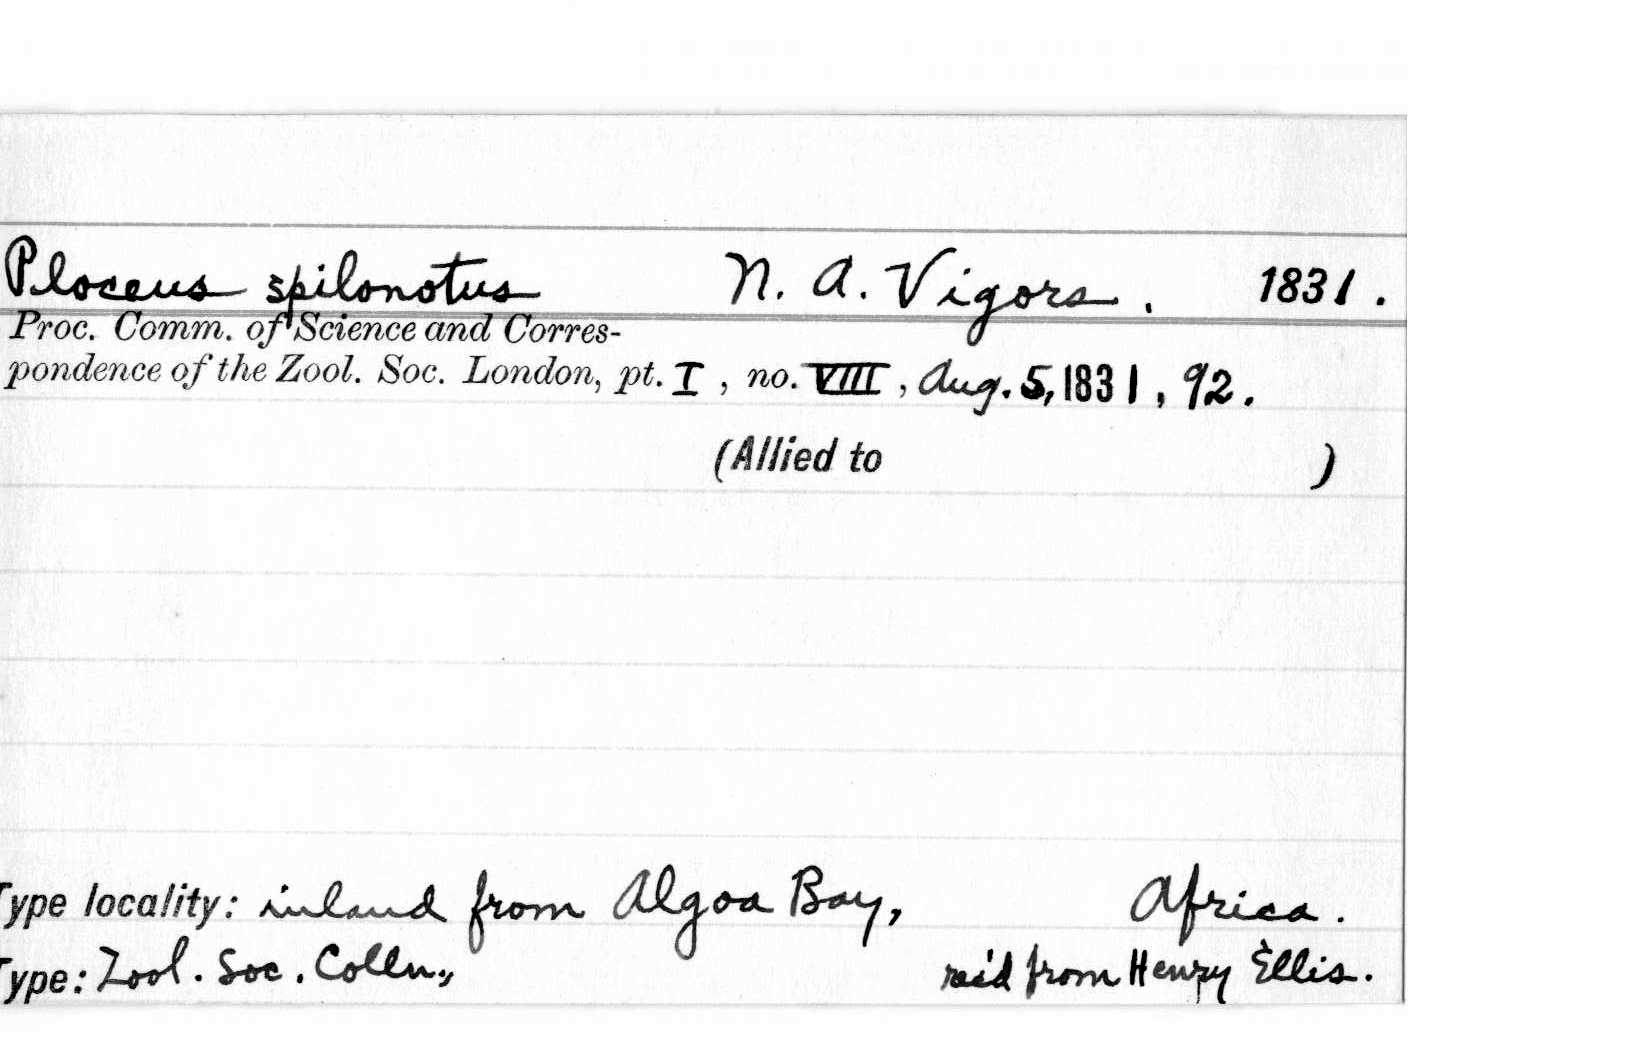 Ploceus spilonotus N. A. Vigors. 1831.
Proc. Comm. of Science and Corres-
pondence of the Zool. Soc. London, pt. I, no. VIII, Aug. 5, 1831, 92.
(Allied to )
Type locality: inland from Algoa Bay, Africa.
Type: Zool. Soc. Colln., rec'd from Henry Ellis.